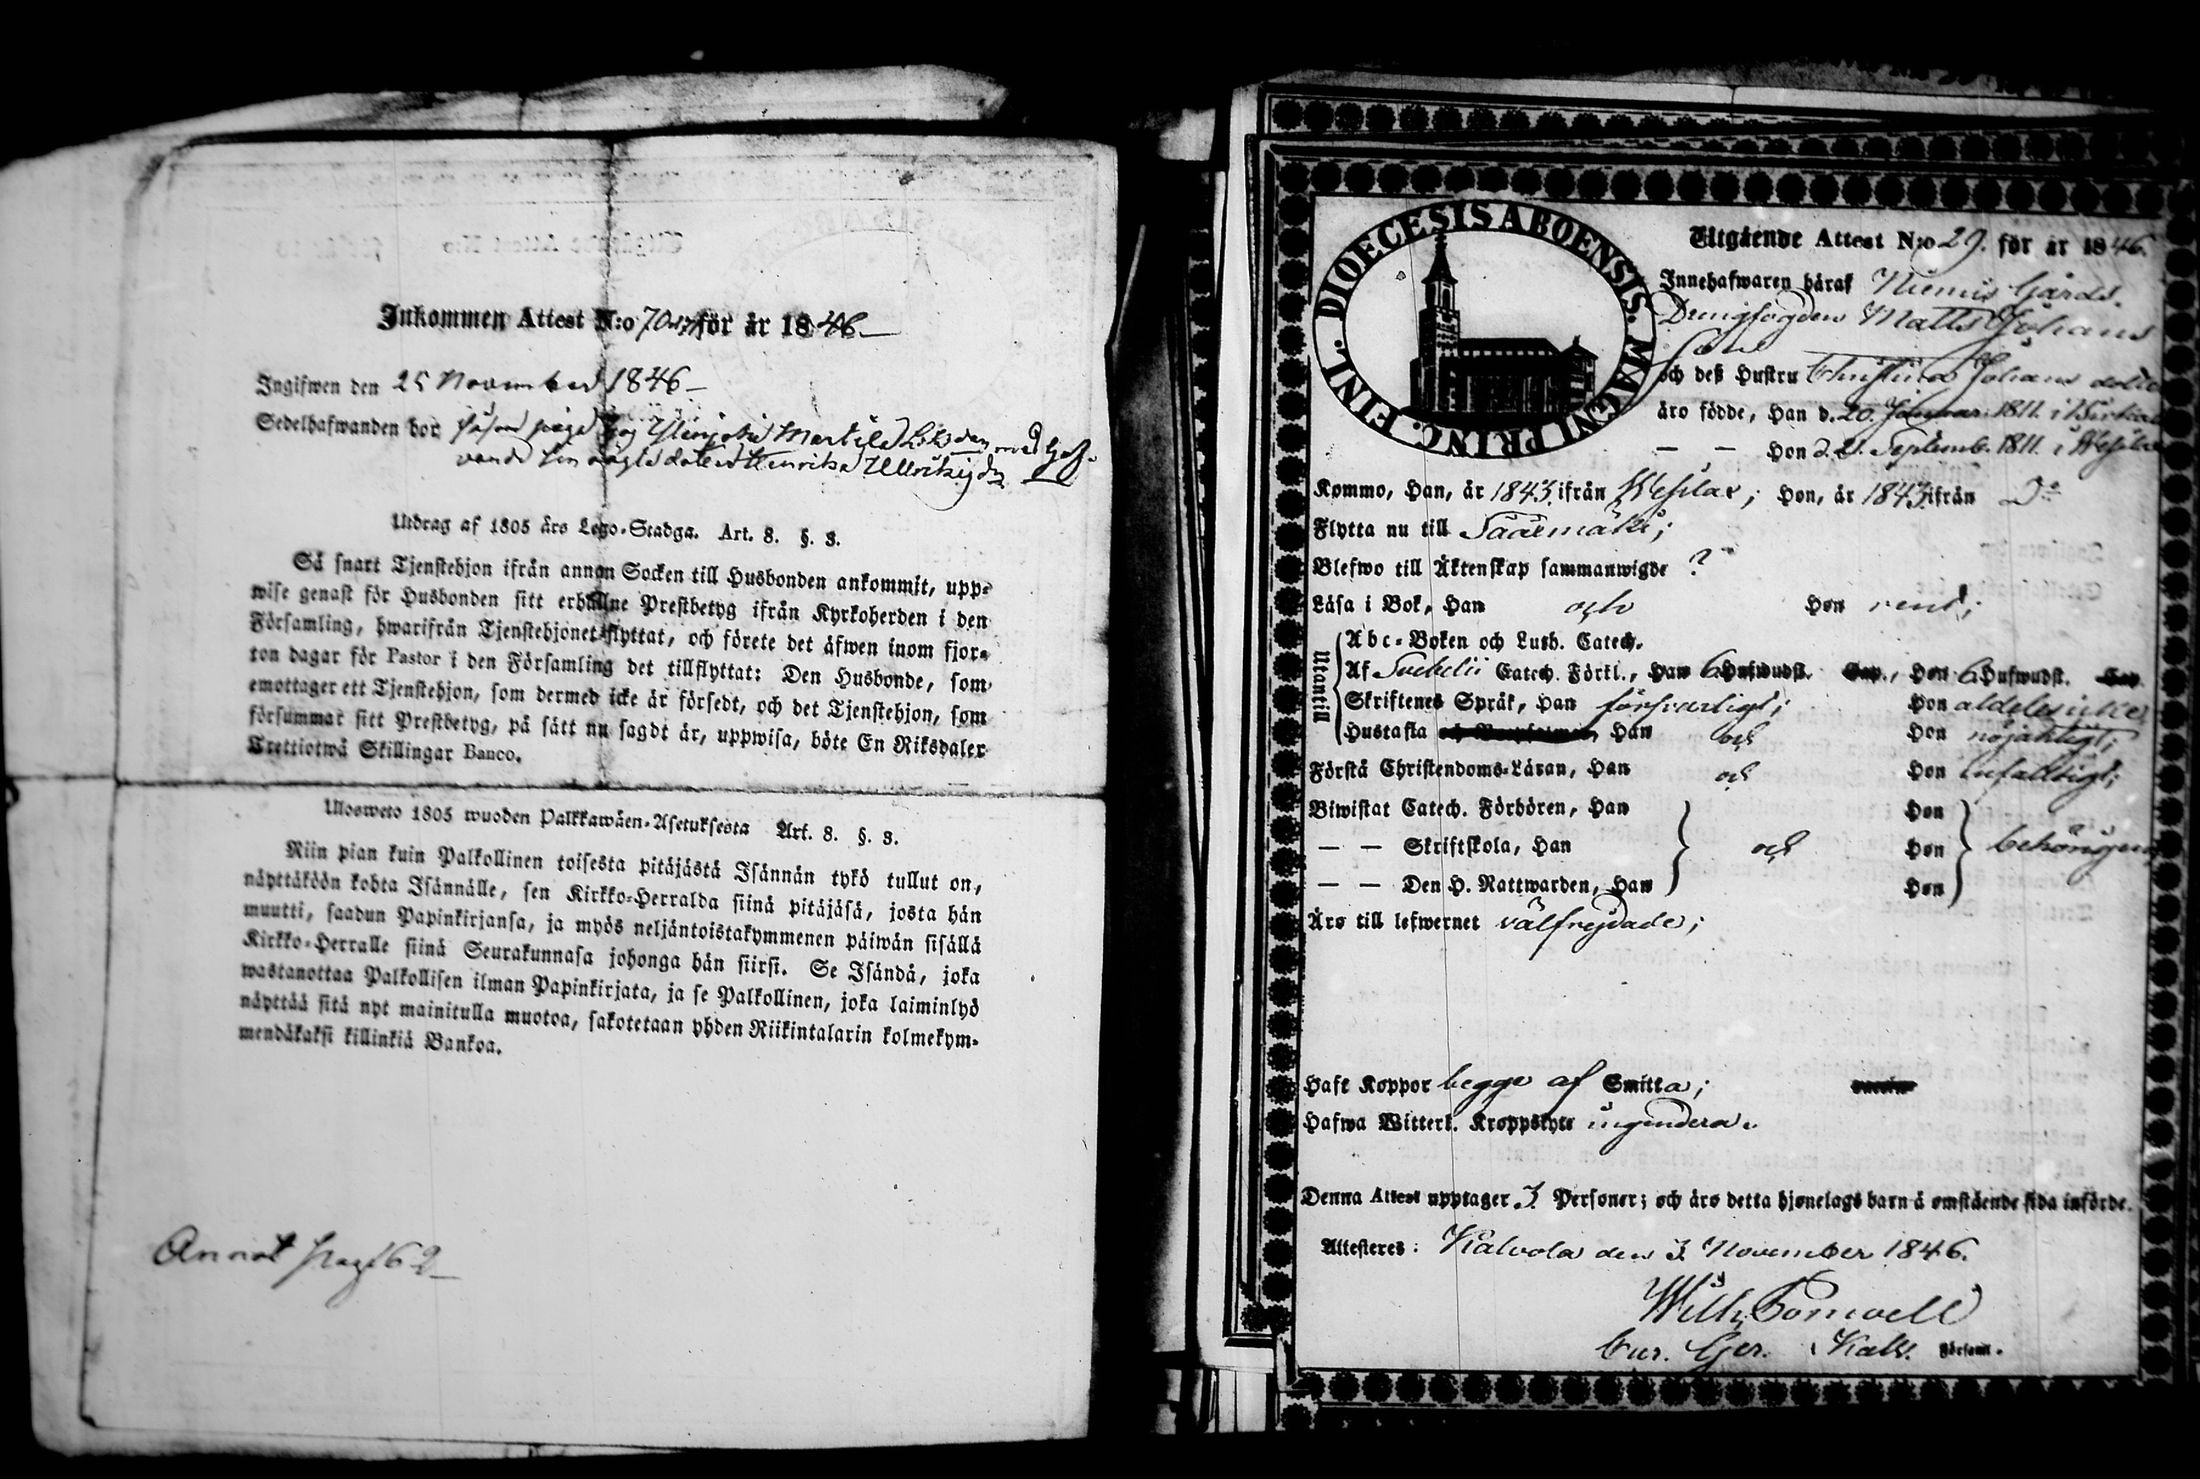 Inkommen Attest N:o 70 för år 1846
Ingifwen den 25 November 1846
Sedelhafwanden bor såsom piga
Henrika Ulrika
Utdrag af 1805 års Lego-Stadga. Art. 8. §. 3.
Så snart Tjenstehjon ifrån annan Socken till Husbonden ankommit, upp-
wise genast för Husbonden sitt erhållne Prestbetyg ifrån Kyrkoherden i den
Församling, hwarifrån Tjenstehjonet flyttat, och förete det äfwen inom fjor-
ton dagar för Pastor i den Församling det tillflyttat: Den Husbonde, som
emottager ett Tjenstehjon, som dermed icke är försedt, och det Tjenstehjon, som
försummar sitt Prestbetyg, på sätt nu sagdt är, uppwisa, böte En Riksdaler
Trettiotwå Skillingar Banco.
Ulosweto 1805 wuoden Palkkawäen-Asetuksesta Art. 8. §. 3.
Niin pian kuin Palkollinen toisesta pitäjästä Isännän tykö tullut on,
näyttäköön kohta Isännälle, sen Kirkko-Herralda siinä pitäjäsä, josta hän
muutti, saadun Papinkirjansa, ja myös neljäntoistakymmenen päiwän sisällä
Kirkko-Herralle siinä Seurakunnasa johonga hän siirsi. Se Isändä, joka
wastanottaa Palkollisen ilman Papinkirjata, ja se Palkollinen, joka laiminlyö
näyttää sitä nyt mainitulla muotoa, sakotetaan yhden Riikintalarin kolmekym-
mendäkaksi killinkiä Bankoa.
Annot pag 62
DIOECESIS ABOENSIS. MAGNI PRINC. FINL.
Utgående Attest N:o 29. för år 1846.
Innehafwaren häraf Niemis Gårds.
Drengfogden Matts Johans
son
och deß Hustru Christina Johans dotter
äro födde, Han d. 20. Januar. 1811. i
— — Hon d. 21. Septemb. 1811. i Wesilax
Kommo, Han, år 1843. ifrån Wesilax; Hon, år 1843. ifrån D:o
Flytta nu till Sääxmäki;
Blefwo till Äktenskap sammanwigde ?
Läsa i Bok, Han och Hon rent;
Utantill
Abc-Boken och Luth. Catech.
Af Svebelii Catech. Förkl., Han 6 Hufwudst. Cap., Hon 6 Hufwudst. Cap
Skriftenes Språk, Han försvarligt; Hon aldeles icke;
Hustafla Han och Hon nöjaktigt;
Förstå Christendoms-Läran, Han och Hon enfaldigt;
Biwistat Catech. Förhören, Han Hon
— — Skriftskola, Han och Hon behörigen
— — Den H. Nattwarden, Han Hon
Äro till lefwernet välfrejdade;
Haft Koppor begge af Smitta;
Hafwa Witterl. Kroppslyte ingendera.
Denna Attest upptager 3. Personer; och äro detta hjonelags barn å omstående sida införde.
Attesteres: Kalvola den 3. November 1846.
Wilh. Bonwell
Cur. Ger. i Kalv. Församl.